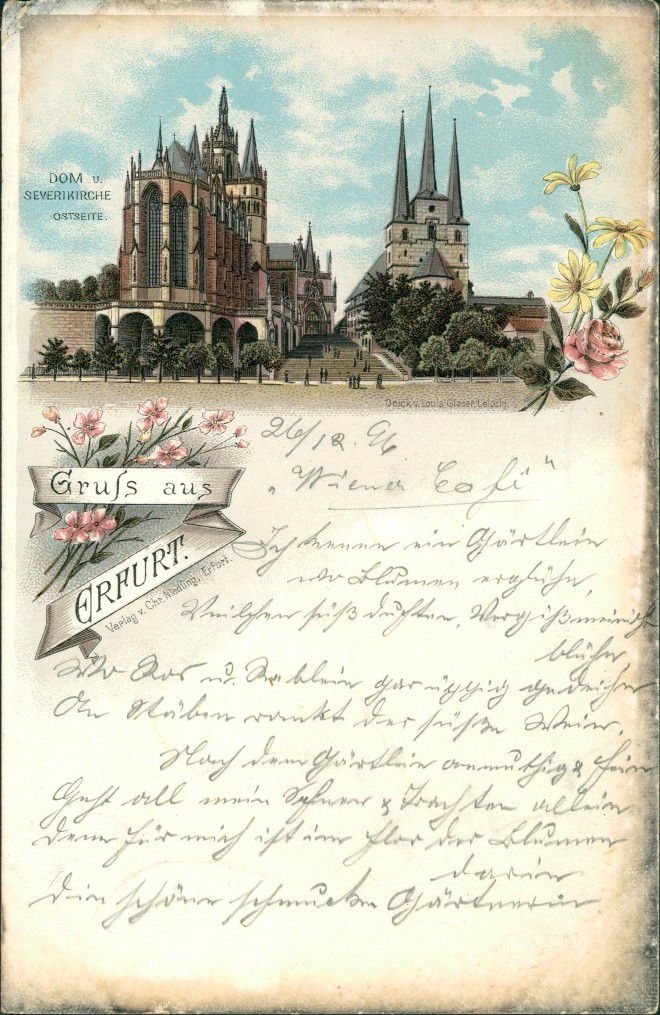 DOM U.
SEVERIKIRCHE
OSTSEITE.
Druck v. Louis Glaser, Leipzig.
Gruſs aus
ERFURT.
Verlag v. Chr. Niedling, Erfurt.
26/12. 96
„Wiener Café"
Ich kenne ein Gärtlein
wo Blumen erglühn,
Veilchen süß duften, Vergißmeinnicht
blühn,
Wo Ros u. gar üppig gedeihen
An Stäben rankt der süße Wein,
Nach dem Gärtlein anmuthig & fein
Geht all mein Sehnen & Trachten allein
Denn für mich ist im Flor der Blumen
darin
Die schöne schmucke Gärtnerin